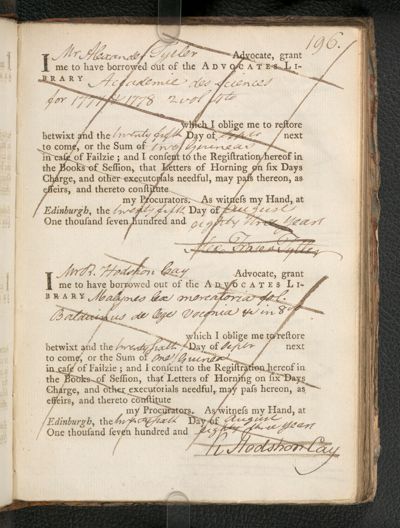 196.
I Mr Alexander Tytler Advocate, grant
me to have borrowed out of the ADVOCATES LI-
BRARY Accademie des Sciences
for 1777 & 1778 2 vol 4to
which I oblige me to reſtore
betwixt and the twenty fifth Day of next
to come, or the Sum of two Guineas
in caſe of Failzie; and I conſent to the Regiſtration hereof in
the Books of Seſſion, that Letters of Horning on ſix Days
Charge, and other executorials needful, may paſs thereon, as
effeirs, and thereto conſtitute
my Procurators. As witneſs my Hand, at
Edinburgh, the twenty fifth Day of August
One thouſand ſeven hundred and eighty three years
Alex Fraser Tytler
I Mr R. Hodshon Cay Advocate, grant
me to have borrowed out of the ADVOCATES LI-
BRARY Malynes Lex mercatoria fol.
Balduinus de Lege Voconia in 8vo
which I oblige me to reſtore
betwixt and the twenty sixth Day of next
to come, or the Sum of one Guinea
in caſe of Failzie; and I conſent to the Regiſtration hereof in
the Books of Seſſion, that Letters of Horning on ſix Days
Charge, and other executorials needful, may paſs hereon, as
effeirs, and thereto conſtitute
my Procurators. As witneſs my Hand, at
Edinburgh, the twenty sixth Day of August
One thouſand ſeven hundred and eighty three years
R. Hodshon Cay